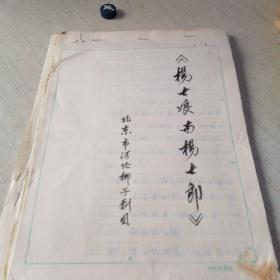 《楊七娘与楊七郎》
北京市河北梆子剧团